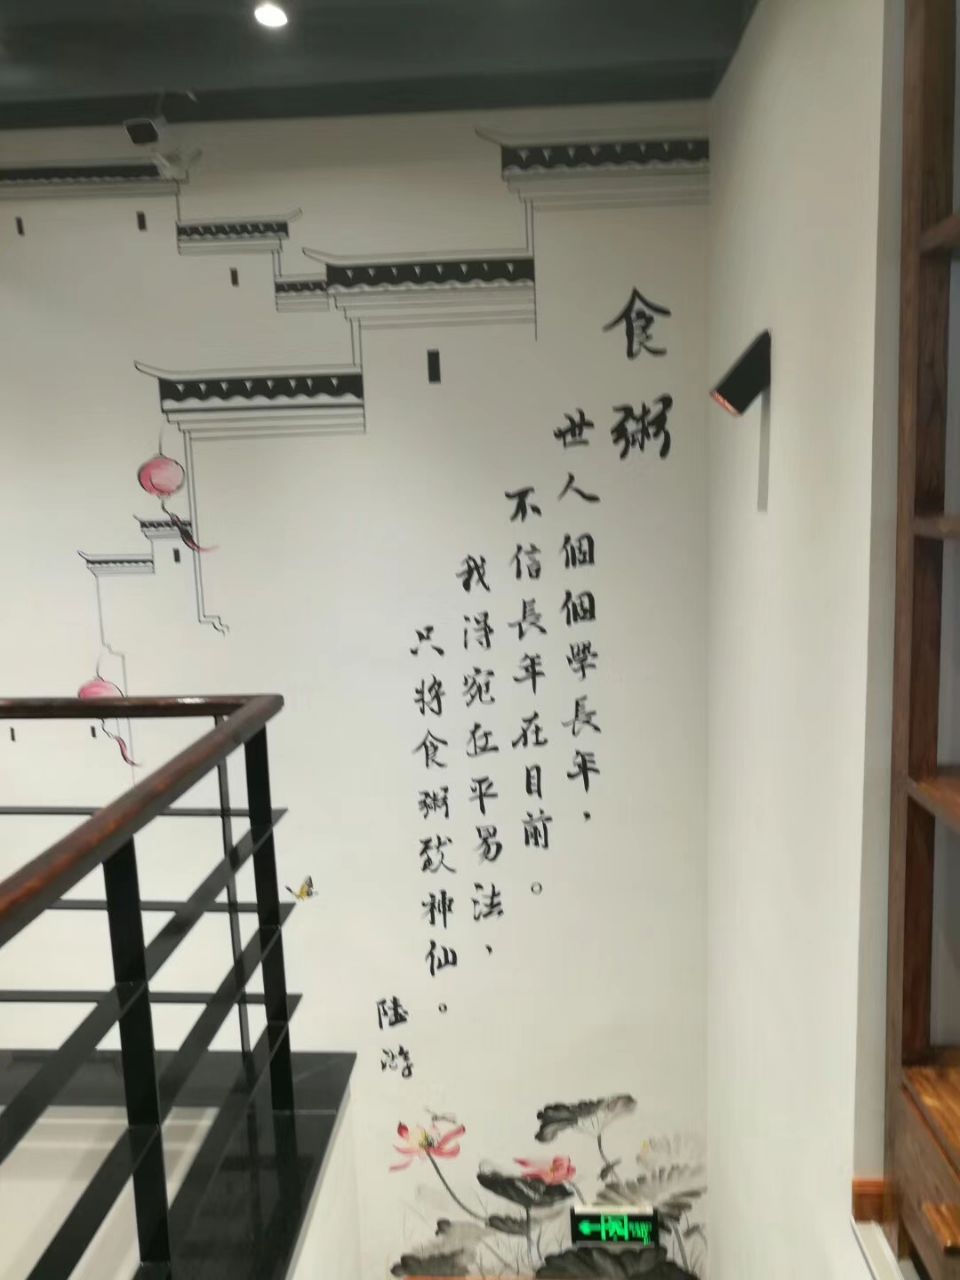 食粥
世人個個學長年，
不信長年在目前。
我得宛丘平易法，
只將食粥致神仙。
陸游